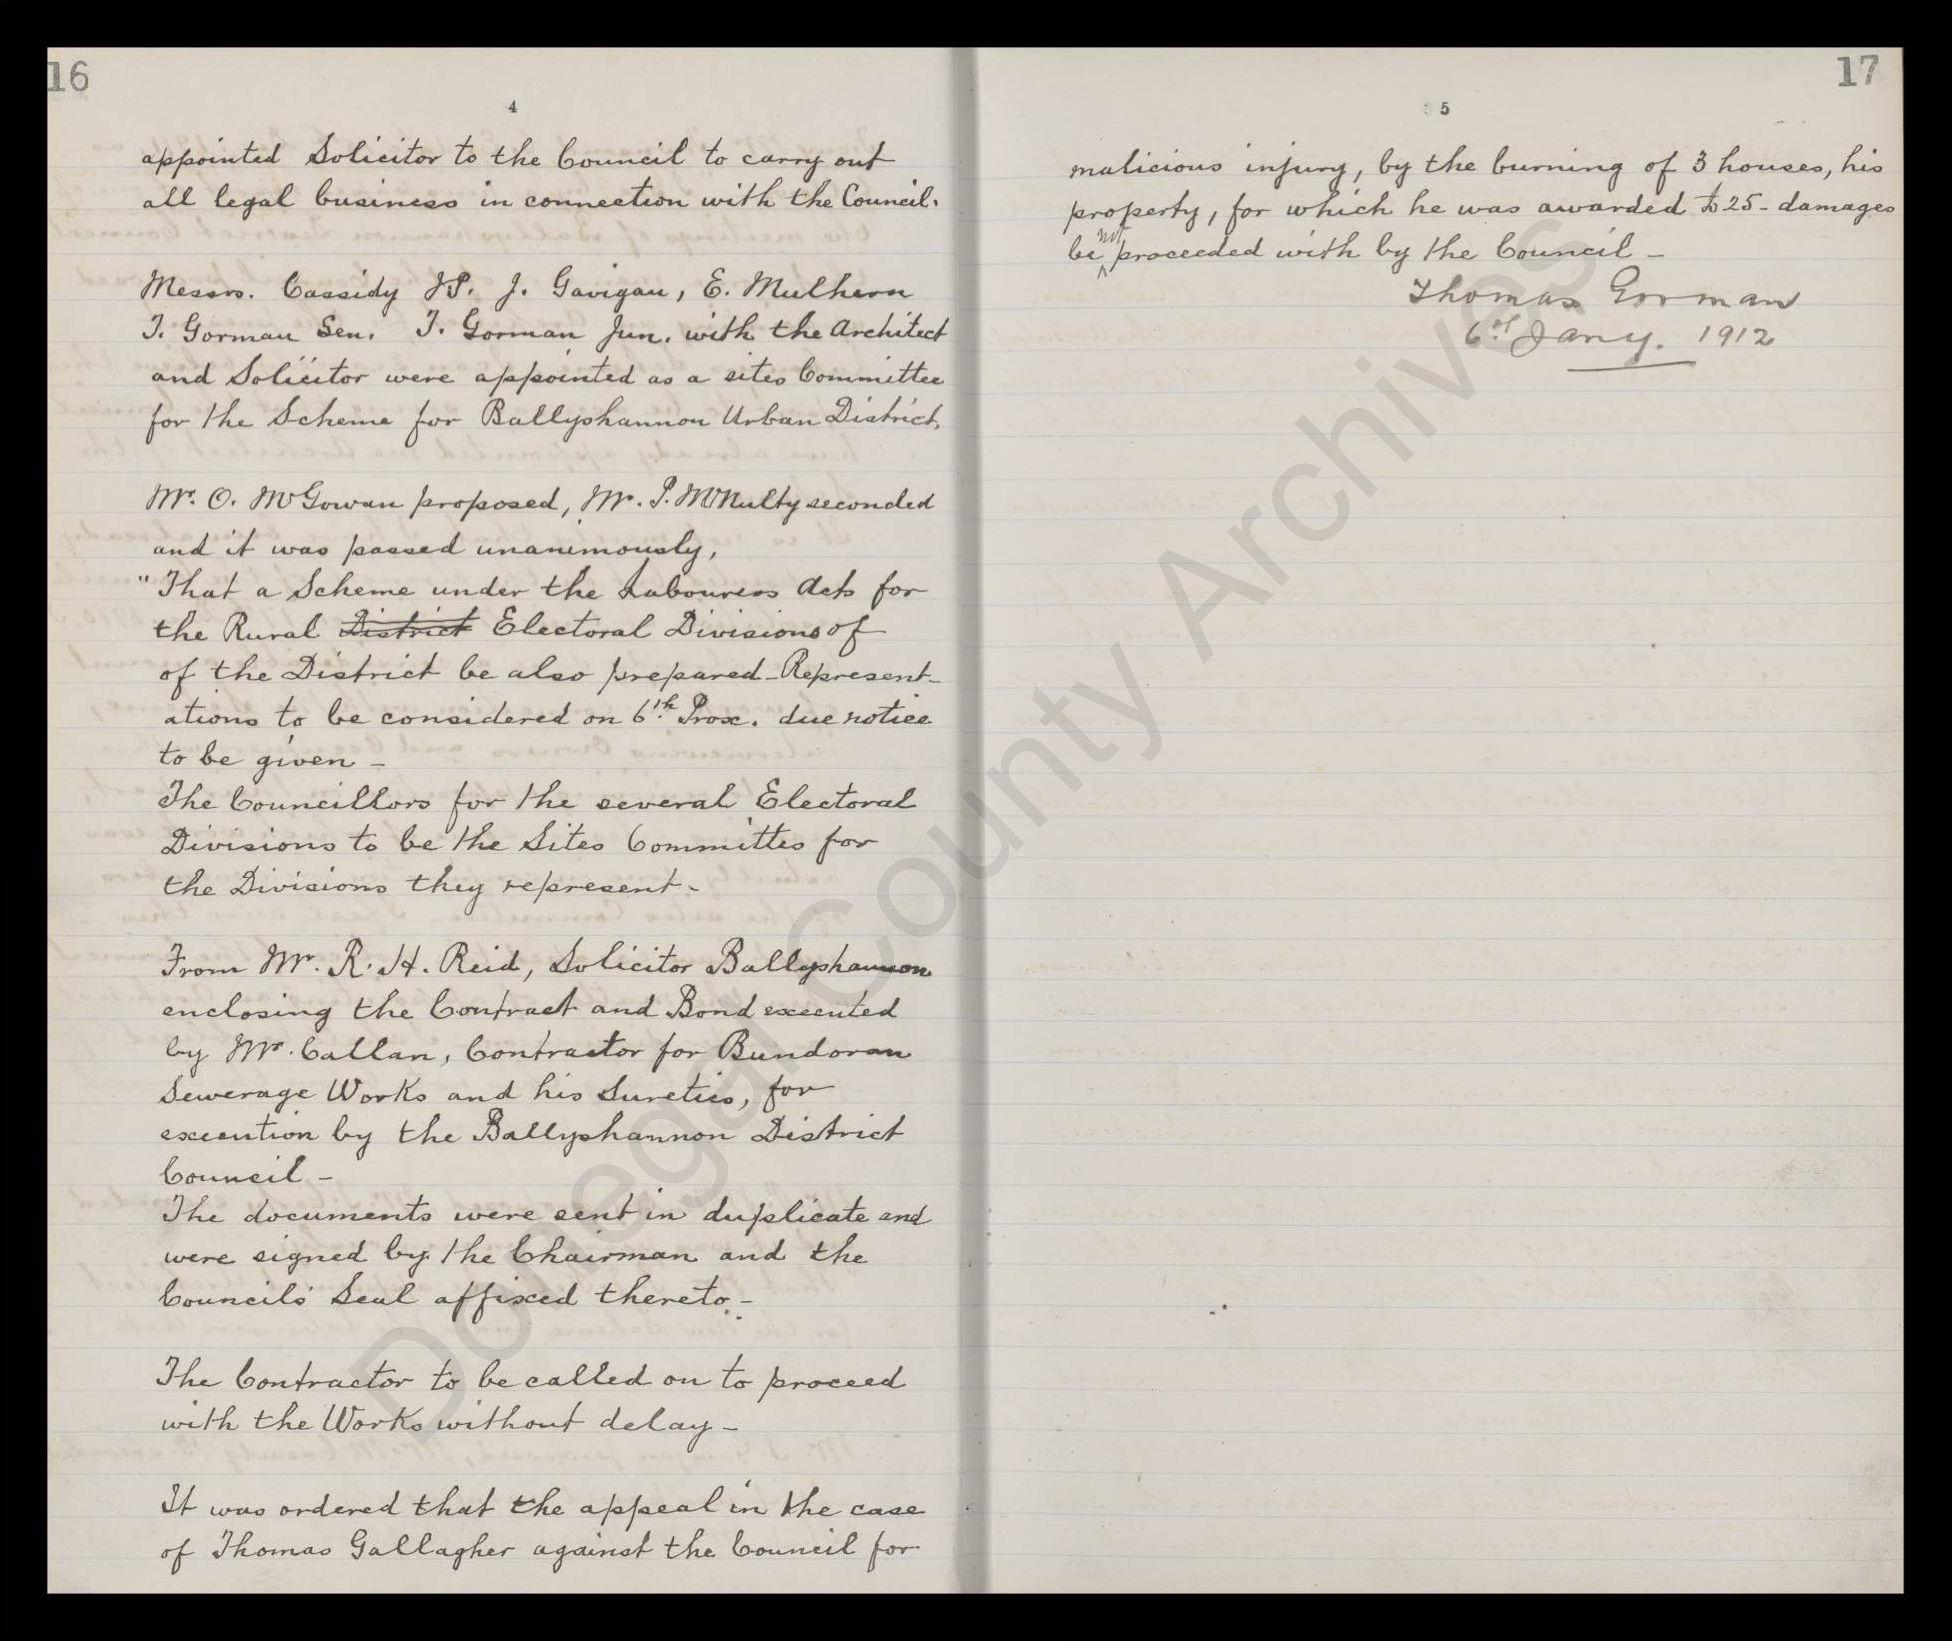 16
4
appointed Solicitor to the Council to carry out
all legal business in connection with the Council.
Messrs. Cassidy J.P. J. Gavigan, E. Mulhern
T. Gorman Sen. T. Gorman Jun. with the Architect
and Solicitor were appointed as a sites Committee
for the Scheme for Ballyshannon Urban District,
Mr. O. McGowan proposed, Mr. P. McNulty seconded
and it was passed unanimously,
"That a Scheme under the Labourers Acts for
the Rural District Electoral Divisions of
of the District be also prepared - Represent-
ations to be considered on 6th Prox. due notice
to be given -
The Councillors for the several Electoral
Divisions to be the Sites Committes for
the Divisions they represent -
From Mr. R. H. Reid, Solicitor Ballyshannon
enclosing the Contract and Bond executed
by Mr. Callan, Contractor for Bundoran
Sewerage Works and his Sureties, for
execution by the Ballyshannon District
Council -
The documents were sent in duplicate and
were signed by the Chairman and the
Council's Seal affixed thereto -
The Contractor to be called on to proceed
with the Works without delay -
It was ordered that the appeal in the case
of Thomas Gallagher against the Council for
17
5
malicious injury, by the burning of 3 houses, his
property, for which he was awarded £25 - damages
be not proceeded with by the Council -
Thomas Gorman
6th Jany. 1912
Donegal County Archives